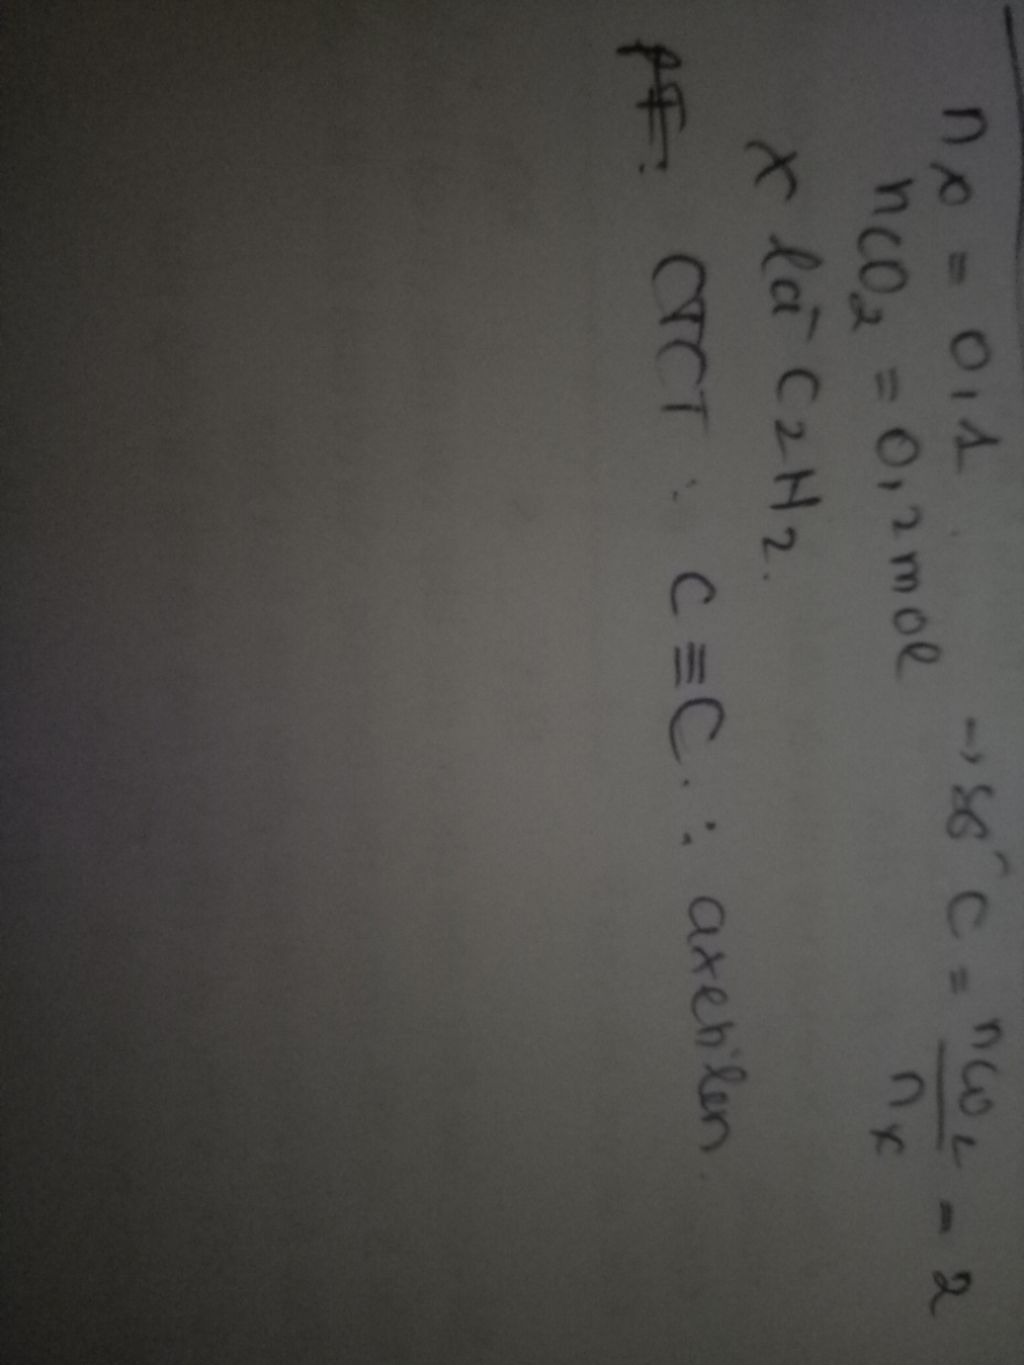 nx = 0,1 → số C = nCO2 / nx = 2
nCO2 = 0,2 mol
X là C2H2.
CTCT : C ≡ C : axetilen.